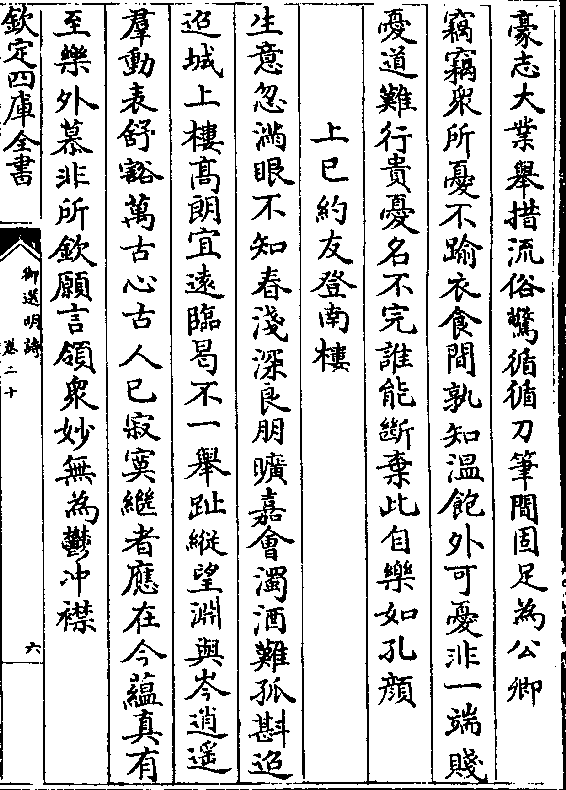 豪志大業舉措流俗驚循循刀筆間固足為公卿
竊竊衆所憂不踰衣食間孰知溫飽外可憂非一端賤
憂道難行貴憂名不完誰能斷棄此自樂如孔顔
上巳約友登南樓
生意忽滿眼不知春淺深良朋曠嘉會濁酒難孤斟迢
迢城上樓髙朗宜遠臨曷不一舉趾縱望淵與岑逍遥
羣動表舒豁萬古心古人已寂寞繼者應在今蘊真有
至樂外慕非所欽願言領衆妙無為鬱冲襟
欽定四庫全書
御選明詩
卷二十
六